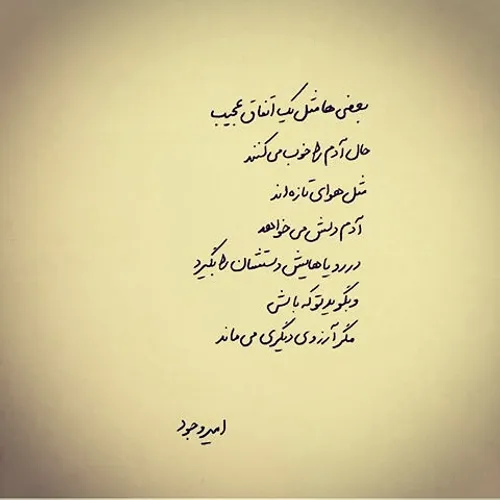 بعضی ها مثل یک اتفاق عجیب
حال آدم را خوب می کنند
مثل هوای تازه اند
آدم دلش می خواهد
در رویاهایش دستشان را بگیرد
و بگوید تو که باشی
مگر آرزوی دیگری می ماند
امیر وجود